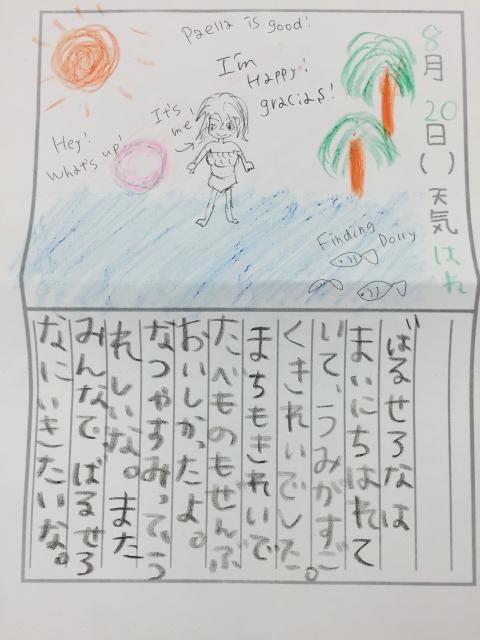 Paella is good!
I'm
Happy!
gracias!
It's
me!
Hey!
What's up!
Finding
Dorry
8月20日( ) 天気 はれ
ばるせろなは
まいにちはれて
いて、うみがすご
くきれいでした。
まちもきれいで
たべものもぜんぶ
おいしかったよ。
なつやすみって、う
れしいな。また
みんなでばるせろ
なにいきたいな。